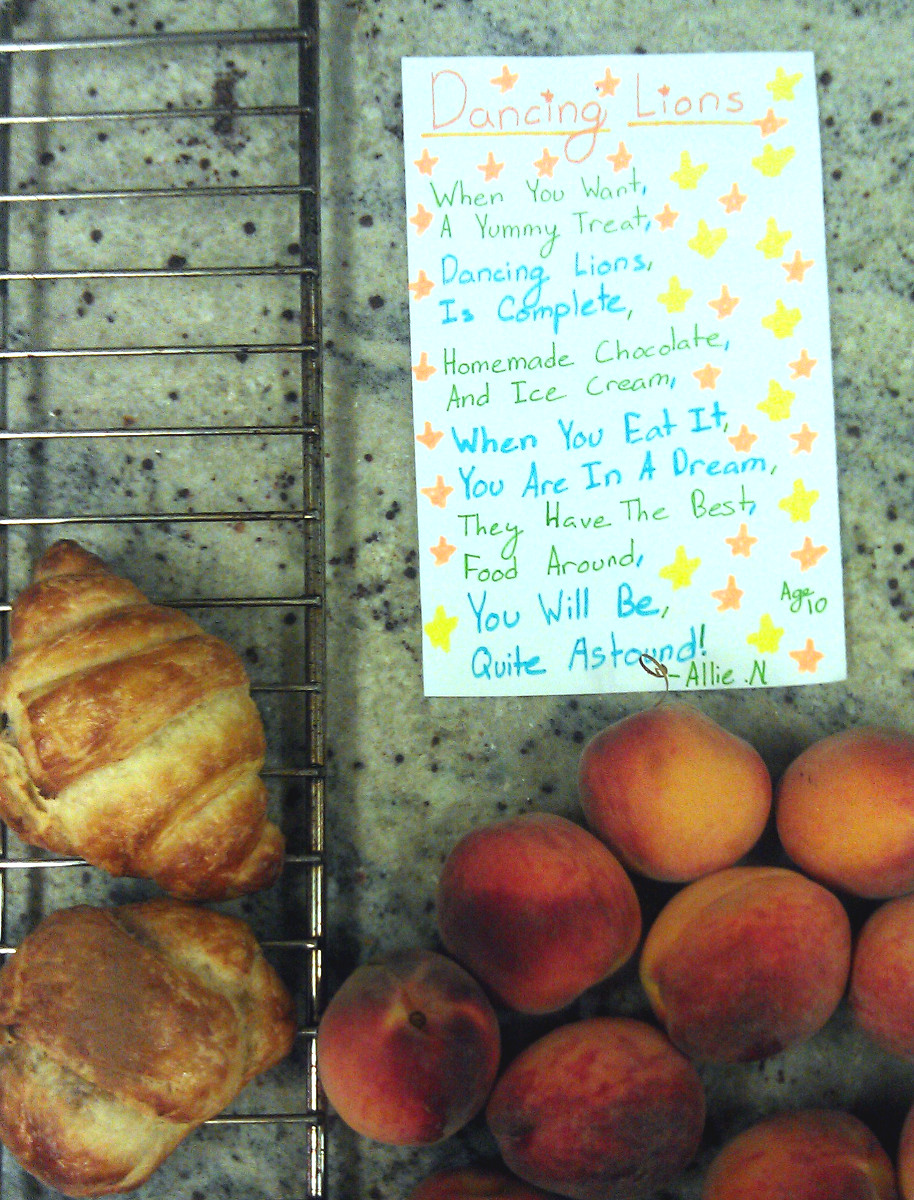 Dancing Lions
When You Want,
A Yummy Treat,
Dancing Lions,
Is Complete,
Homemade Chocolate,
And Ice Cream,
When You Eat It,
You Are In A Dream,
They Have The Best,
Food Around,
You Will Be,
Quite Astound!
Age 10
-Allie .N